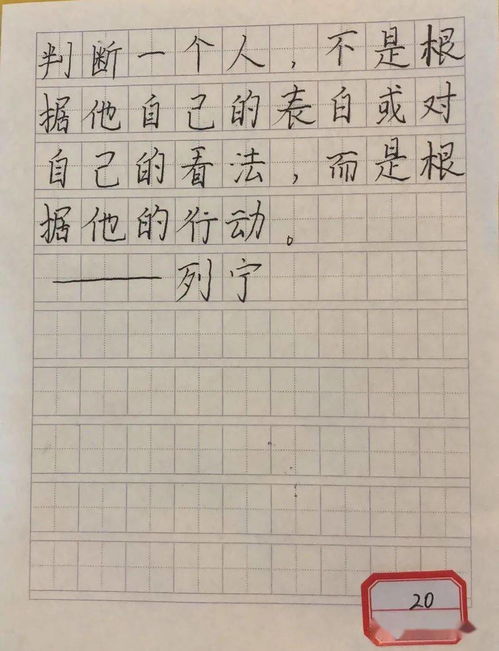 判断一个人，不是根
据他自己的表白或对
自己的看法，而是根
据他的行动。
——列宁
20